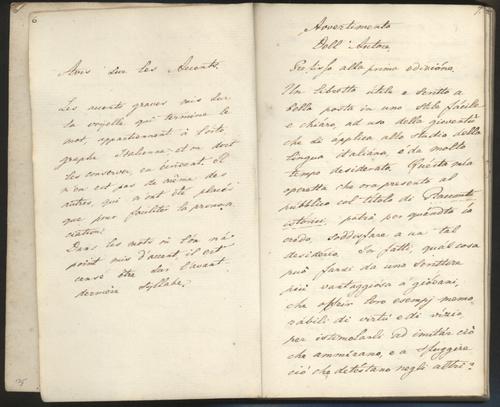 6
Avis sur les Accents.
Les accents graves mis sur
la voyelle qui termine le
mot, appartiennent à l'orto-
graphe Italienne; et on doit
les conserver, en écrivant. Il
n'en est pas de même des
autres, qui n'ont été placés
que pour faciliter la pronon-
ciation.
Dans les mots où l'on n'a
point mis d'accent, il est
censé être sur l'avant
dernière syllabe.
7
Avvertimento
Dell' Autore
Prefisso alla prima edizióne.
Un libretto útile e scritto a
bella posta in uno stile fácile
e chiáro, ad uso della gioventù
che si ápplica allo studio della
lingua italiána, è da molto
tempo desideráto. Quésta mia
operetta che ora presento al
púbblico col títolo di Racconti
istórici, potrà per quánto io
credo, soddisfare a un tal
desidério. In fatti, qual cosa
può farsi da uno Scrittore
più vantaggiosa a' gióvani,
che offrir loro esempj memo-
rábili di virtù e di vízio,
per istimolarli ad imitár ciò
che ammírano, e a sfuggire
ciò che detéstano negli altri?